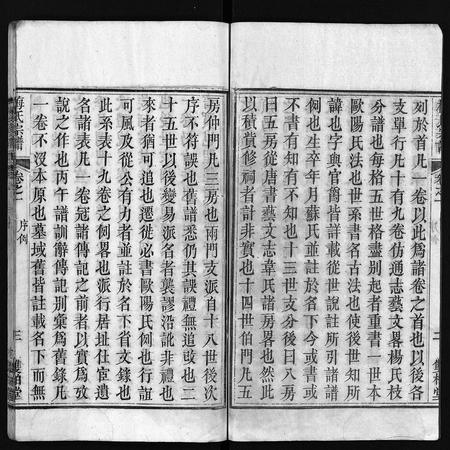 列於首凡一卷以此爲譜卷之首也以後各
支單行凡十有九卷仿通志藝文畧楊氏枝
分譜也每格五世格盡别起者重書一世本
歐陽氏法也世系書名古法也使後世知所
諱也字與官爵皆詳載從世說註所引諸譜
例也生卒年月蘇氏皆載於名下今或書或
不書有知有不知也十三世支分曰前房曰
後房從唐書藝文志韋氏諸房畧也然此
以積貲修祠者計非實也十四世伯門凡五
房仲門凡三房也兩門支派自十八世後次
序不符誤也舊譜悉仍其誤概無追改也二
十五世以後變易派名者襲謬沿訛非禮也
來者猶可追也遷徙必書歐陽氏例也行誼
可風及從公有力者並註於名下省文錄也
此系表十九卷之例畧也派行居址仕宦遺
名諸表凡一卷冠諸傳記之前者以實爲攷
說之作也丙午譜訓辭傳記别彙爲舊錄凡
一卷不没本原也墓域舊皆註載名下而無
梅氏宗譜 卷之一 序例 三 雙柏堂